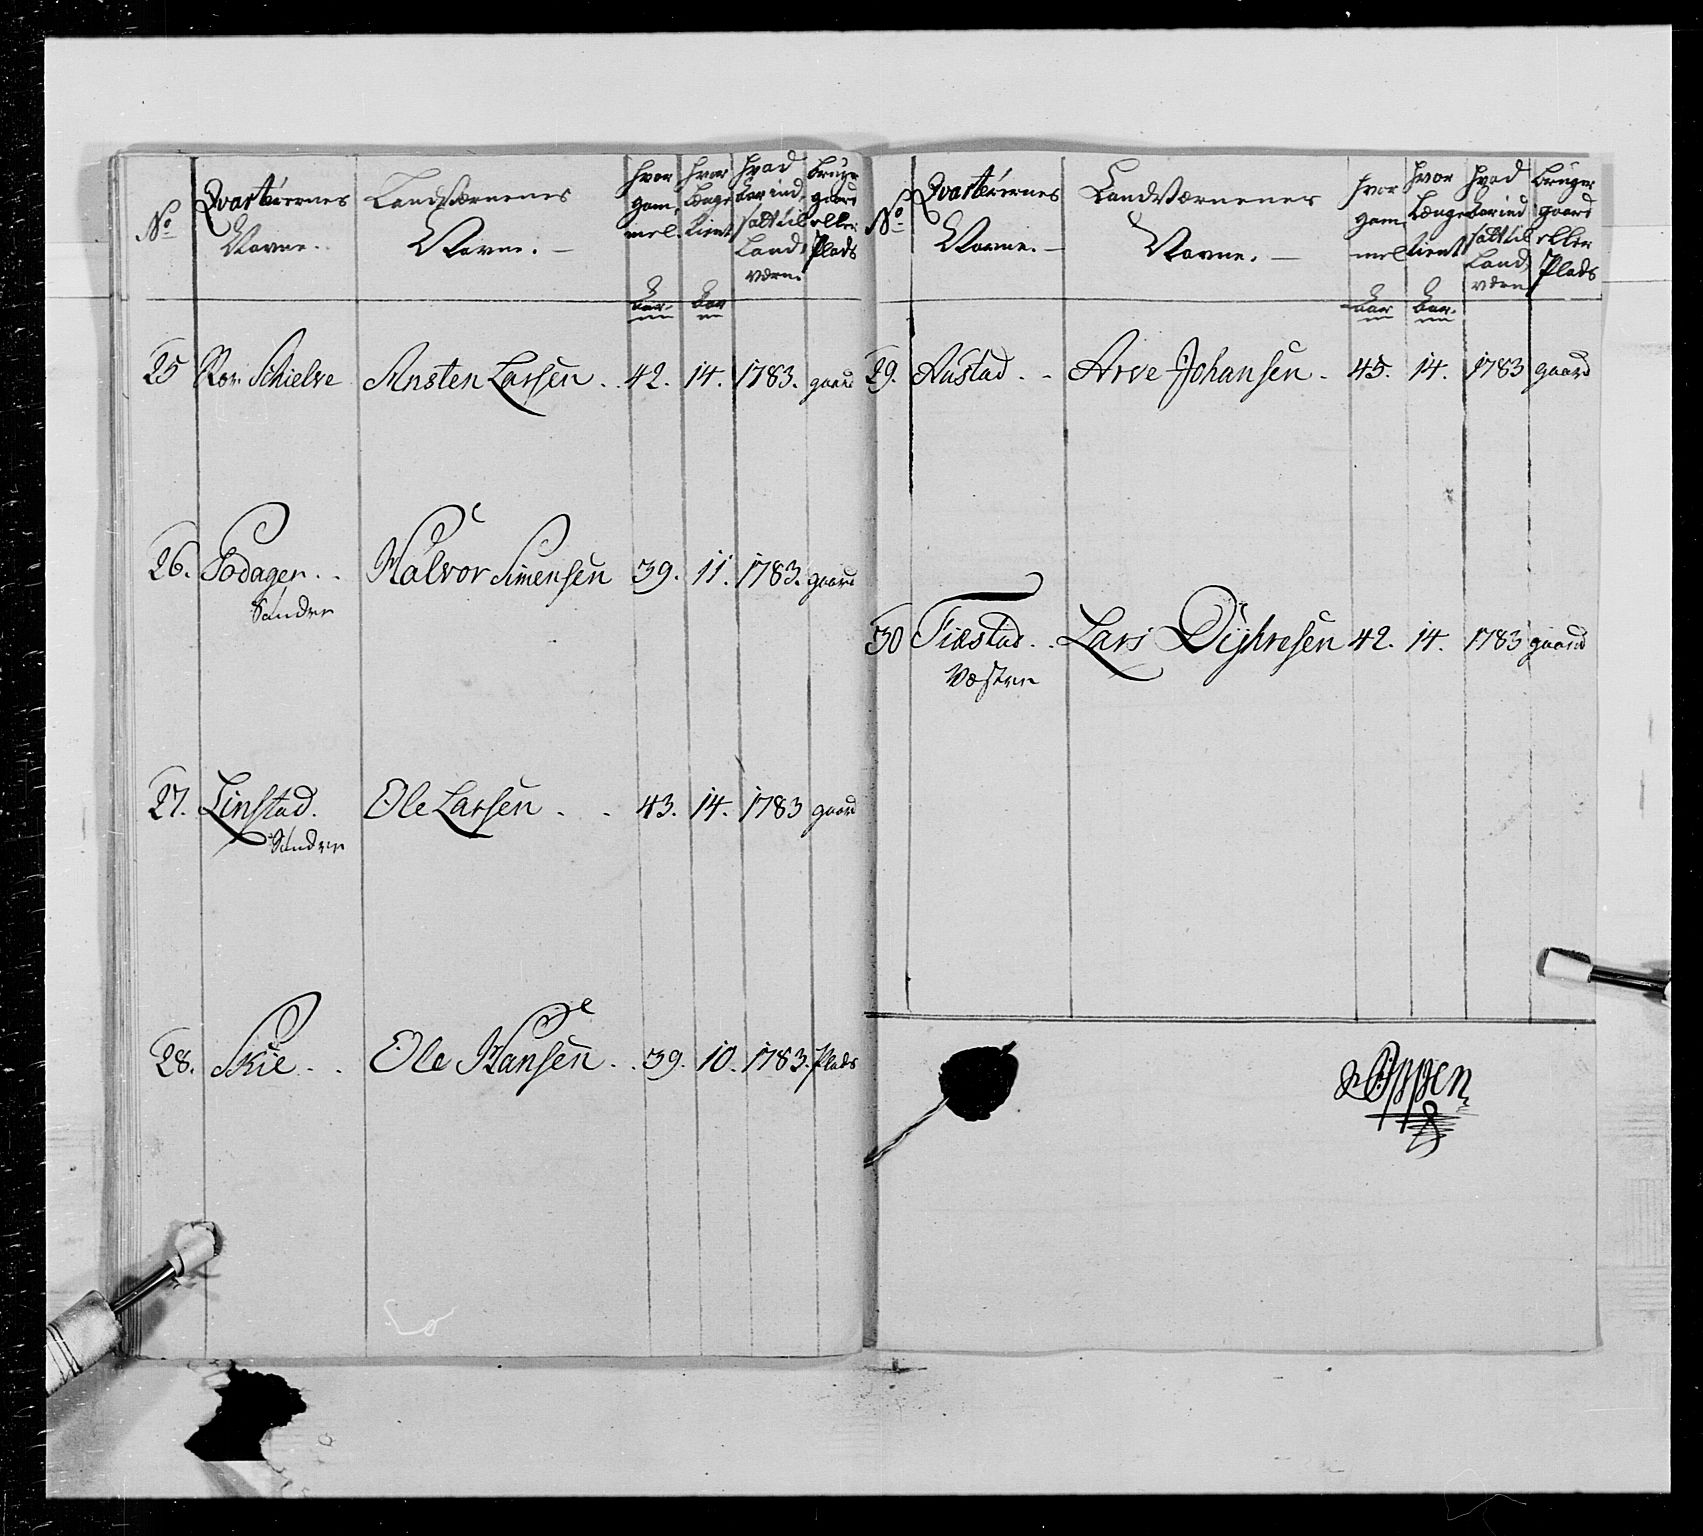 No
Qvarteerernes
Navne.
Landværnenes
Navne. —
hvor
gam,
mel.
Aar
hvor
længe
tient
Aar
hvad
Aar ind,
satt til
Land,
værn.
bruger
gaard
eller
Plads
25 Nor: Schielve Ansten Larsen . . 42. 14. 1783. gaard
26. Sodager . . Halvor Simensen 39. 11. 1783. gaard
Søndre
27. Linstad. Ole Larsen . . 43. 14. 1783 gaard
Søndre
28. Skie . . Ole Hansen . . 39. 10. 1783. Plads
No
Qvarteerernes
Navne. —
Landværnenes
Navne. —
hvor
gam,
mel
Aar
hvor
længe
tient
Aar
hvad
Aar ind
satt til
Land,
værn
bruger
gaard
eller
Plads
29. Austad . . Arve Johansen . 45. 14. 1783 gaard
30 Fiæstad . . Lars Dyhresen 42. 14. 1783 gaard
Væstre
Oppen